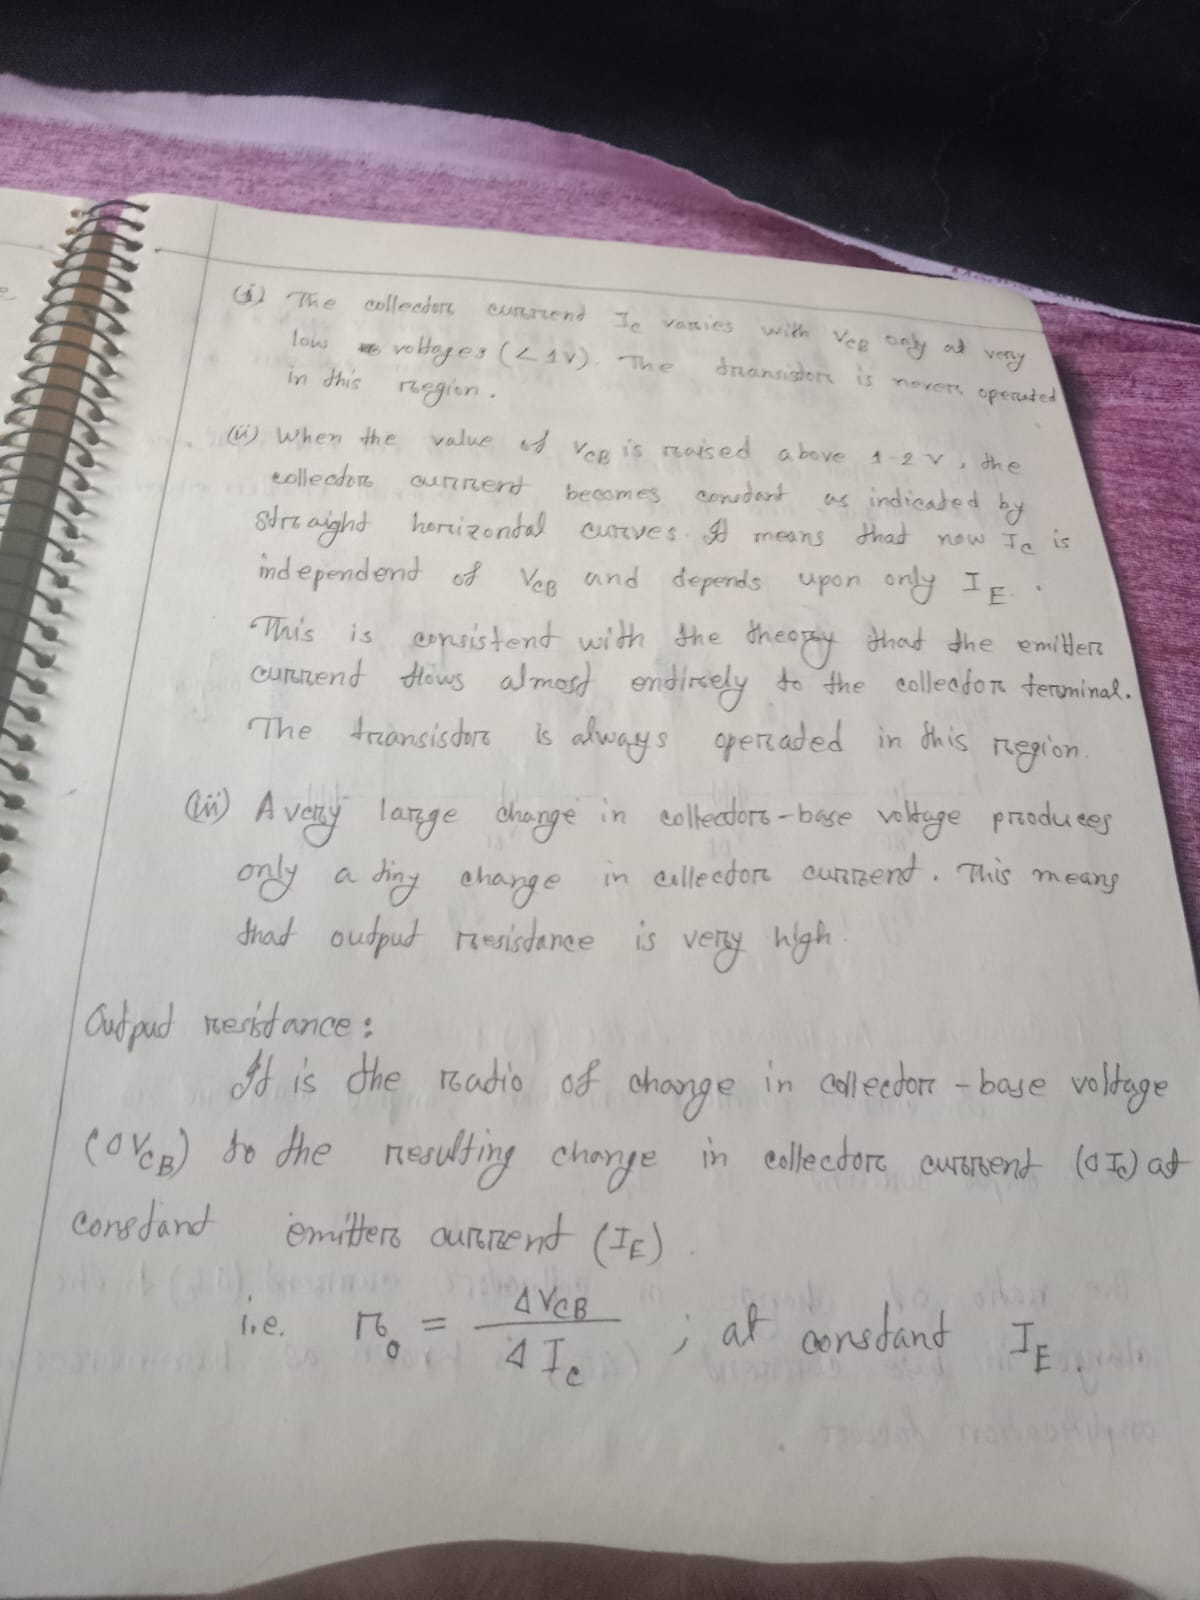 (i) The collector current Ic varies with VCB only at very
low voltages (< 1V). The transistor is never operated
in this region.
(ii) When the value of VCB is raised above 1-2 V, the
collector current becomes constant as indicated by
straight horizontal curves. It means that now Ic is
independent of VCB and depends upon only IE.
This is consistent with the theory that the emitter
current flows almost entirely to the collector terminal.
The transistor is always operated in this region.
(iii) A very large change in collector-base voltage produces
only a tiny change in collector current. This means
that output resistance is very high.
Output resistance:
It is the ratio of change in collector-base voltage
(ΔVCB) to the resulting change in collector current (ΔIc) at
constant emitter current (IE).
i.e. r₀ = ΔVCB / ΔIc ; at constant IE.